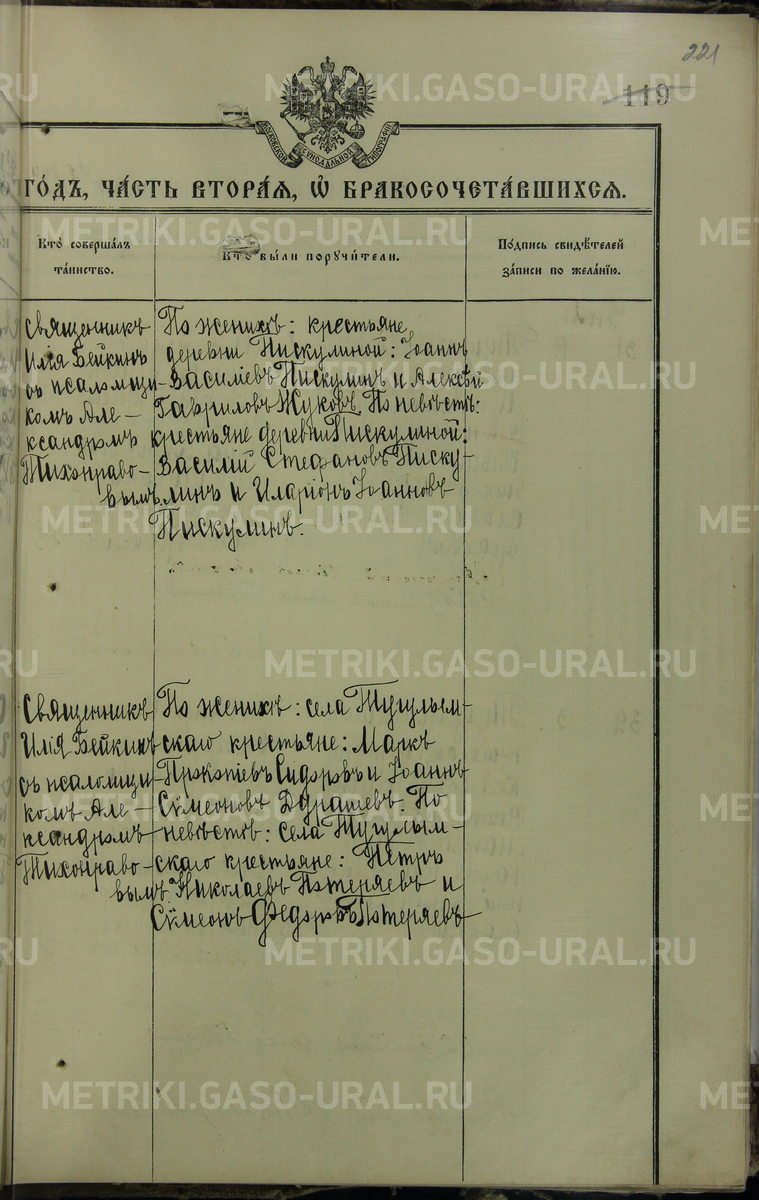 221
119
МОСКОВСКОЙ СѴНОДАЛЬНОЙ ТИПОГРАФІИ
ГО́ДЪ, ЧА́СТЬ ВТОРА́Ѧ, Ѽ БРАКОСОЧЕТА́ВШИХСѦ.
Кто̀ соверша́лъ
та́инство.
Кто̀ бы́ли порꙋчи́тели.
По́дпись свидѣ́телей
за́писи по жела́нїю.
Священникъ
Илія Бейкинъ
съ псаломщи-
комъ Але-
ксандромъ
Тихонраво-
вымъ.
По женихѣ: крестьяне
деревни Пискулиной: Іоаннъ
Василіевъ Пискулинъ и Алексѣй
Гавриловъ Жуковъ. По невѣстѣ:
крестьяне деревни Пискулиной:
Василій Стефановъ Писку-
линъ и Иларіонъ Іоанновъ
Пискулинъ.
Священникъ
Илія Бейкинъ
съ псаломщи-
комъ Але-
ксандромъ
Тихонраво-
вымъ.
По женихѣ: села Тугулым-
скаго крестьяне: Маркъ
Прокопіевъ Сидоровъ и Іоаннъ
Сѵмеоновъ Дурашевъ. По
невѣстѣ: села Тугулым-
скаго крестьяне: Петръ
Николаевъ Потеряевъ и
Сѵмеонъ Ѳедоровъ Потеряевъ
METRIKI.GASO-URAL.RU